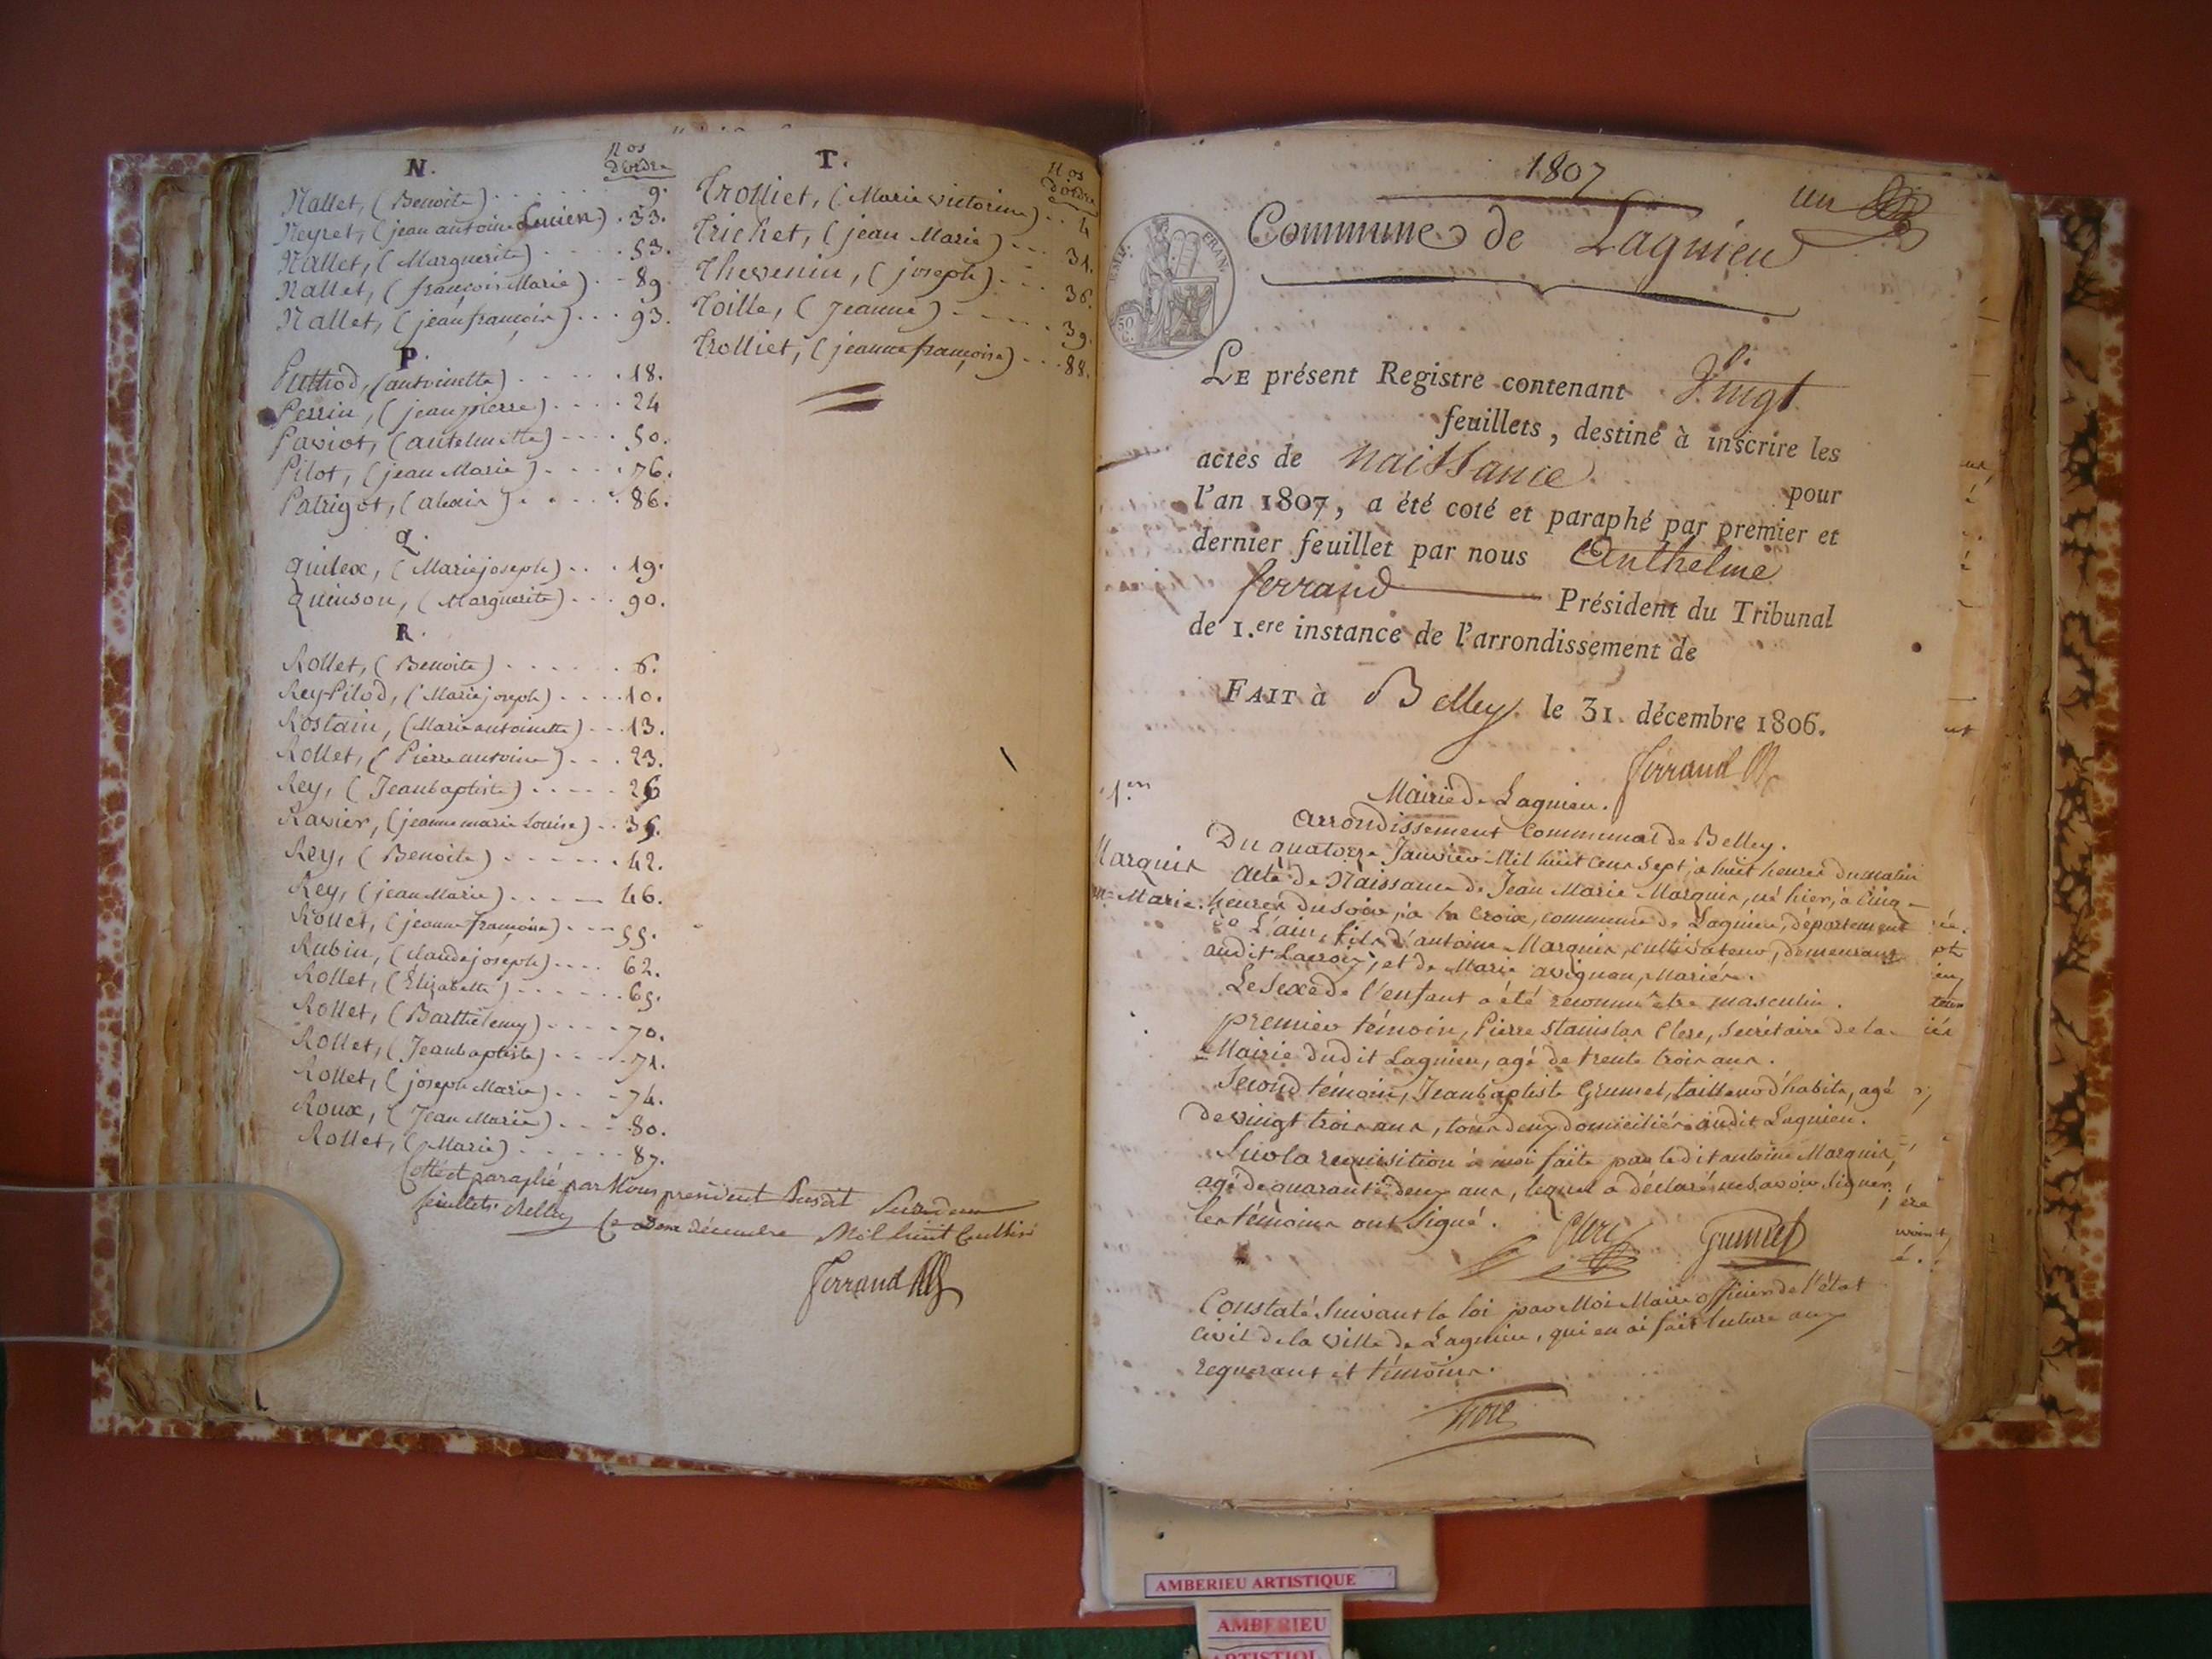 N.
Nos d'ordre
Nallet, (Benoite) . . . . . . . 9.
Neyret, (jean antoine Lucien) . 33.
Nallet, (Marguerite) . . . . . 53.
Nallet, (françois Marie) . . 89
Nallet, (jean françois) . . . 93.
P.
Puthod, (antoinette) . . . . . 18.
Perrin, (jean pierre) . . . . 24
Paviot, (antelmette) . . . . 50.
Pilot, (jean Marie) . . . . 76.
Patrigot, (alexis) . . . . . 86.
Q.
Quilex, (Marie joseph) . . . 19.
Quinson, (Marguerite) . . . 90.
R.
Rollet, (Benoite) . . . . . . 6.
Rey-Pilod, (Marie joseph) . . . . 10.
Rostain, (Marie antoinette) . . . 13.
Rollet, (Pierre antoine) . . . 23.
Rey, (Jean baptiste) . . . . . 26
Ravier, (jeanne marie Louise) . . 35.
Rey, (Benoite) . . . . . . 42.
Rey, (jean Marie) . . . . . 46.
Rollet, (jeanne françoise) . . . 55.
Rubin, (claude joseph) . . . . 62.
Rollet, (Élizabeth) . . . . . . 65.
Rollet, (Barthélemy) . . . . 70.
Rollet, (Jean baptiste) . . . . 71.
Rollet, (joseph Marie) . . . 74.
Roux, (Jean Marie) . . . . 80.
Rollet, (Marie) . . . . . . 87.
Cotté et paraphé par Nous president Susdit
feuillets. Belley Le décembre Mil huit Cent
Ferrand
T.
Nos d'ordre
Trolliet, (Marie victorine) . . 4
Trichet, (jean Marie) . . . 31.
Thevenin, (joseph) . . . . 36.
Toille, (Jeanne) . . . . . 39.
Trolliet, (jeanne françoise) . . . 88.
1807
un
Commune de Lagnieu
EMP. FRAN.
50 C.
LE présent Registre contenant Vingt
feuillets, destiné à inscrire les
actes de naissance pour
l'an 1807, a été coté et paraphé par premier et
dernier feuillet par nous Anthelme
ferrand Président du Tribunal
de 1.ere instance de l'arrondissement de
FAIT à Belley. le 31. décembre 1806.
Ferrand
Mairie de Lagnieu.
arrondissement Communal de Belley.
1.er
Marquis
Marie.
Du quatorze Janvier Mil huit Cent Sept, à huit heures du matin
Acte de Naissance de Jean Marie Marquis, né hier, à cinq
heures du soir, à la Croix, commune de Lagnieu, département
de L'ain, fils d'antoine Marquis, cultivateur, demeurant
audit Lacroix, et de Marie avignon, Mariés.
Le sexe de l'enfant a été reconnu etre masculin.
premier témoin, Pierre Stanislas Clerc, Secrétaire de la
Mairie dudit Lagnieu, agé de trente trois ans.
Second témoin, Jean baptiste Grumet, tailleur d'habits, agé
de vingt trois ans, tous deux domiciliés audit Lagnieu.
Sur la requisition à moi faite par ledit antoine Marquis,
agé de quarante deux ans, lequel a déclaré ne savoir signer.
les témoins ont signé.
Clerc
Grumet
Constaté Suivant la loi par Moi Maire officier de l'état
Civil de la ville de Lagnieu, qui en ai fait lecture aux
requerant et témoins.
AMBERIEU ARTISTIQUE
AMBERIEU